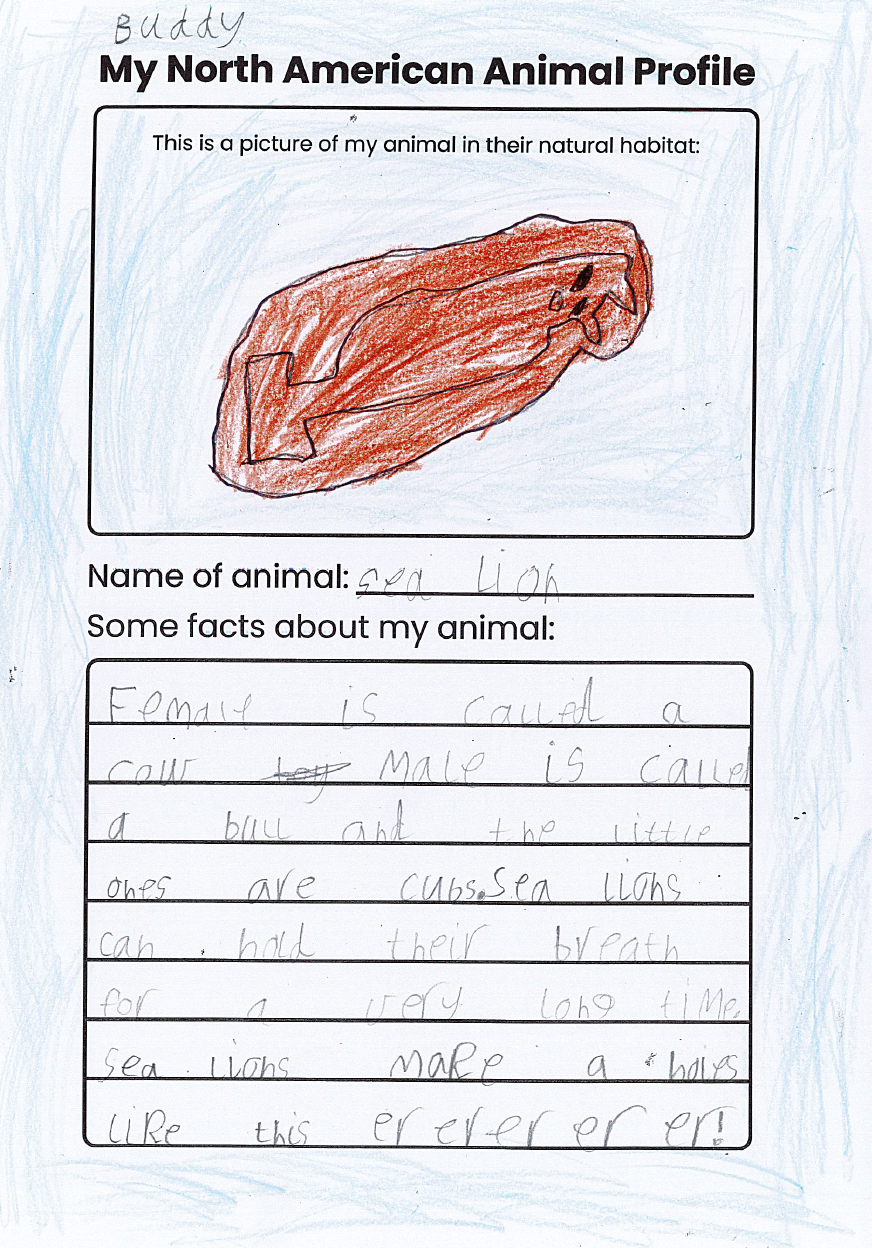 Buddy
My North American Animal Profile
This is a picture of my animal in their natural habitat:
Name of animal: sea Lion
Some facts about my animal:
Female is called a
cow Male is called
a bull and the little
ones are cubs. Sea lions
can hold their breath
for a very long time.
Sea lions make a hoies
like this er er er er er!